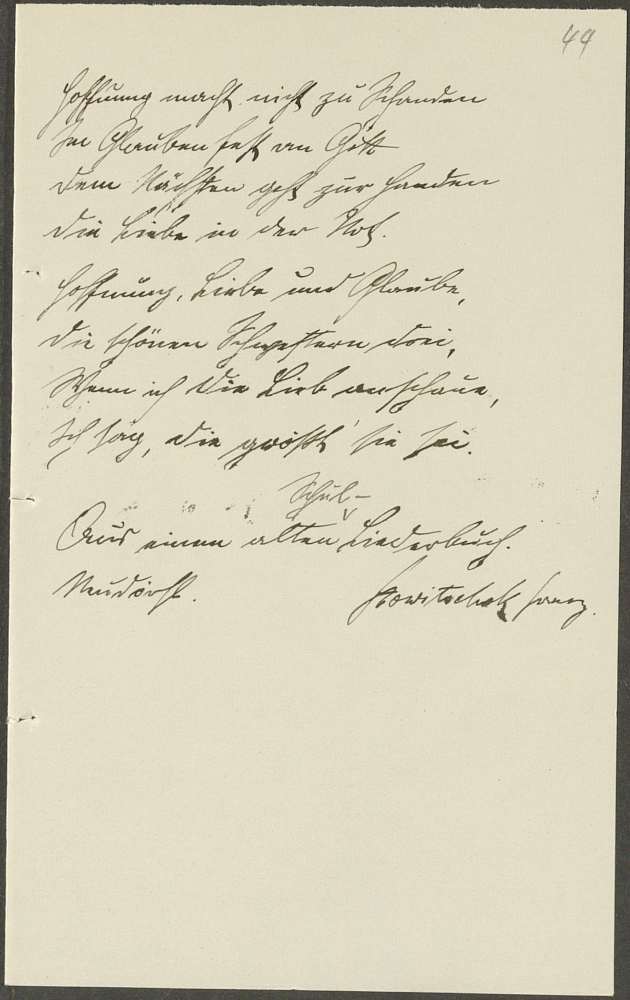 44
Hoffnung macht nicht zu Schanden
Im Glauben fest an Gott
dem Nächsten geht zur Handen
die Liebe in der Not.
Hoffnung, Liebe und Glaube,
die schönen Schwestern drei,
Wenn ich die Lieb anschaue,
Ich sag, die größt' sie sei.
Schul-
Aus einem alten Liederbuch.
Neudörfl.
Franz.